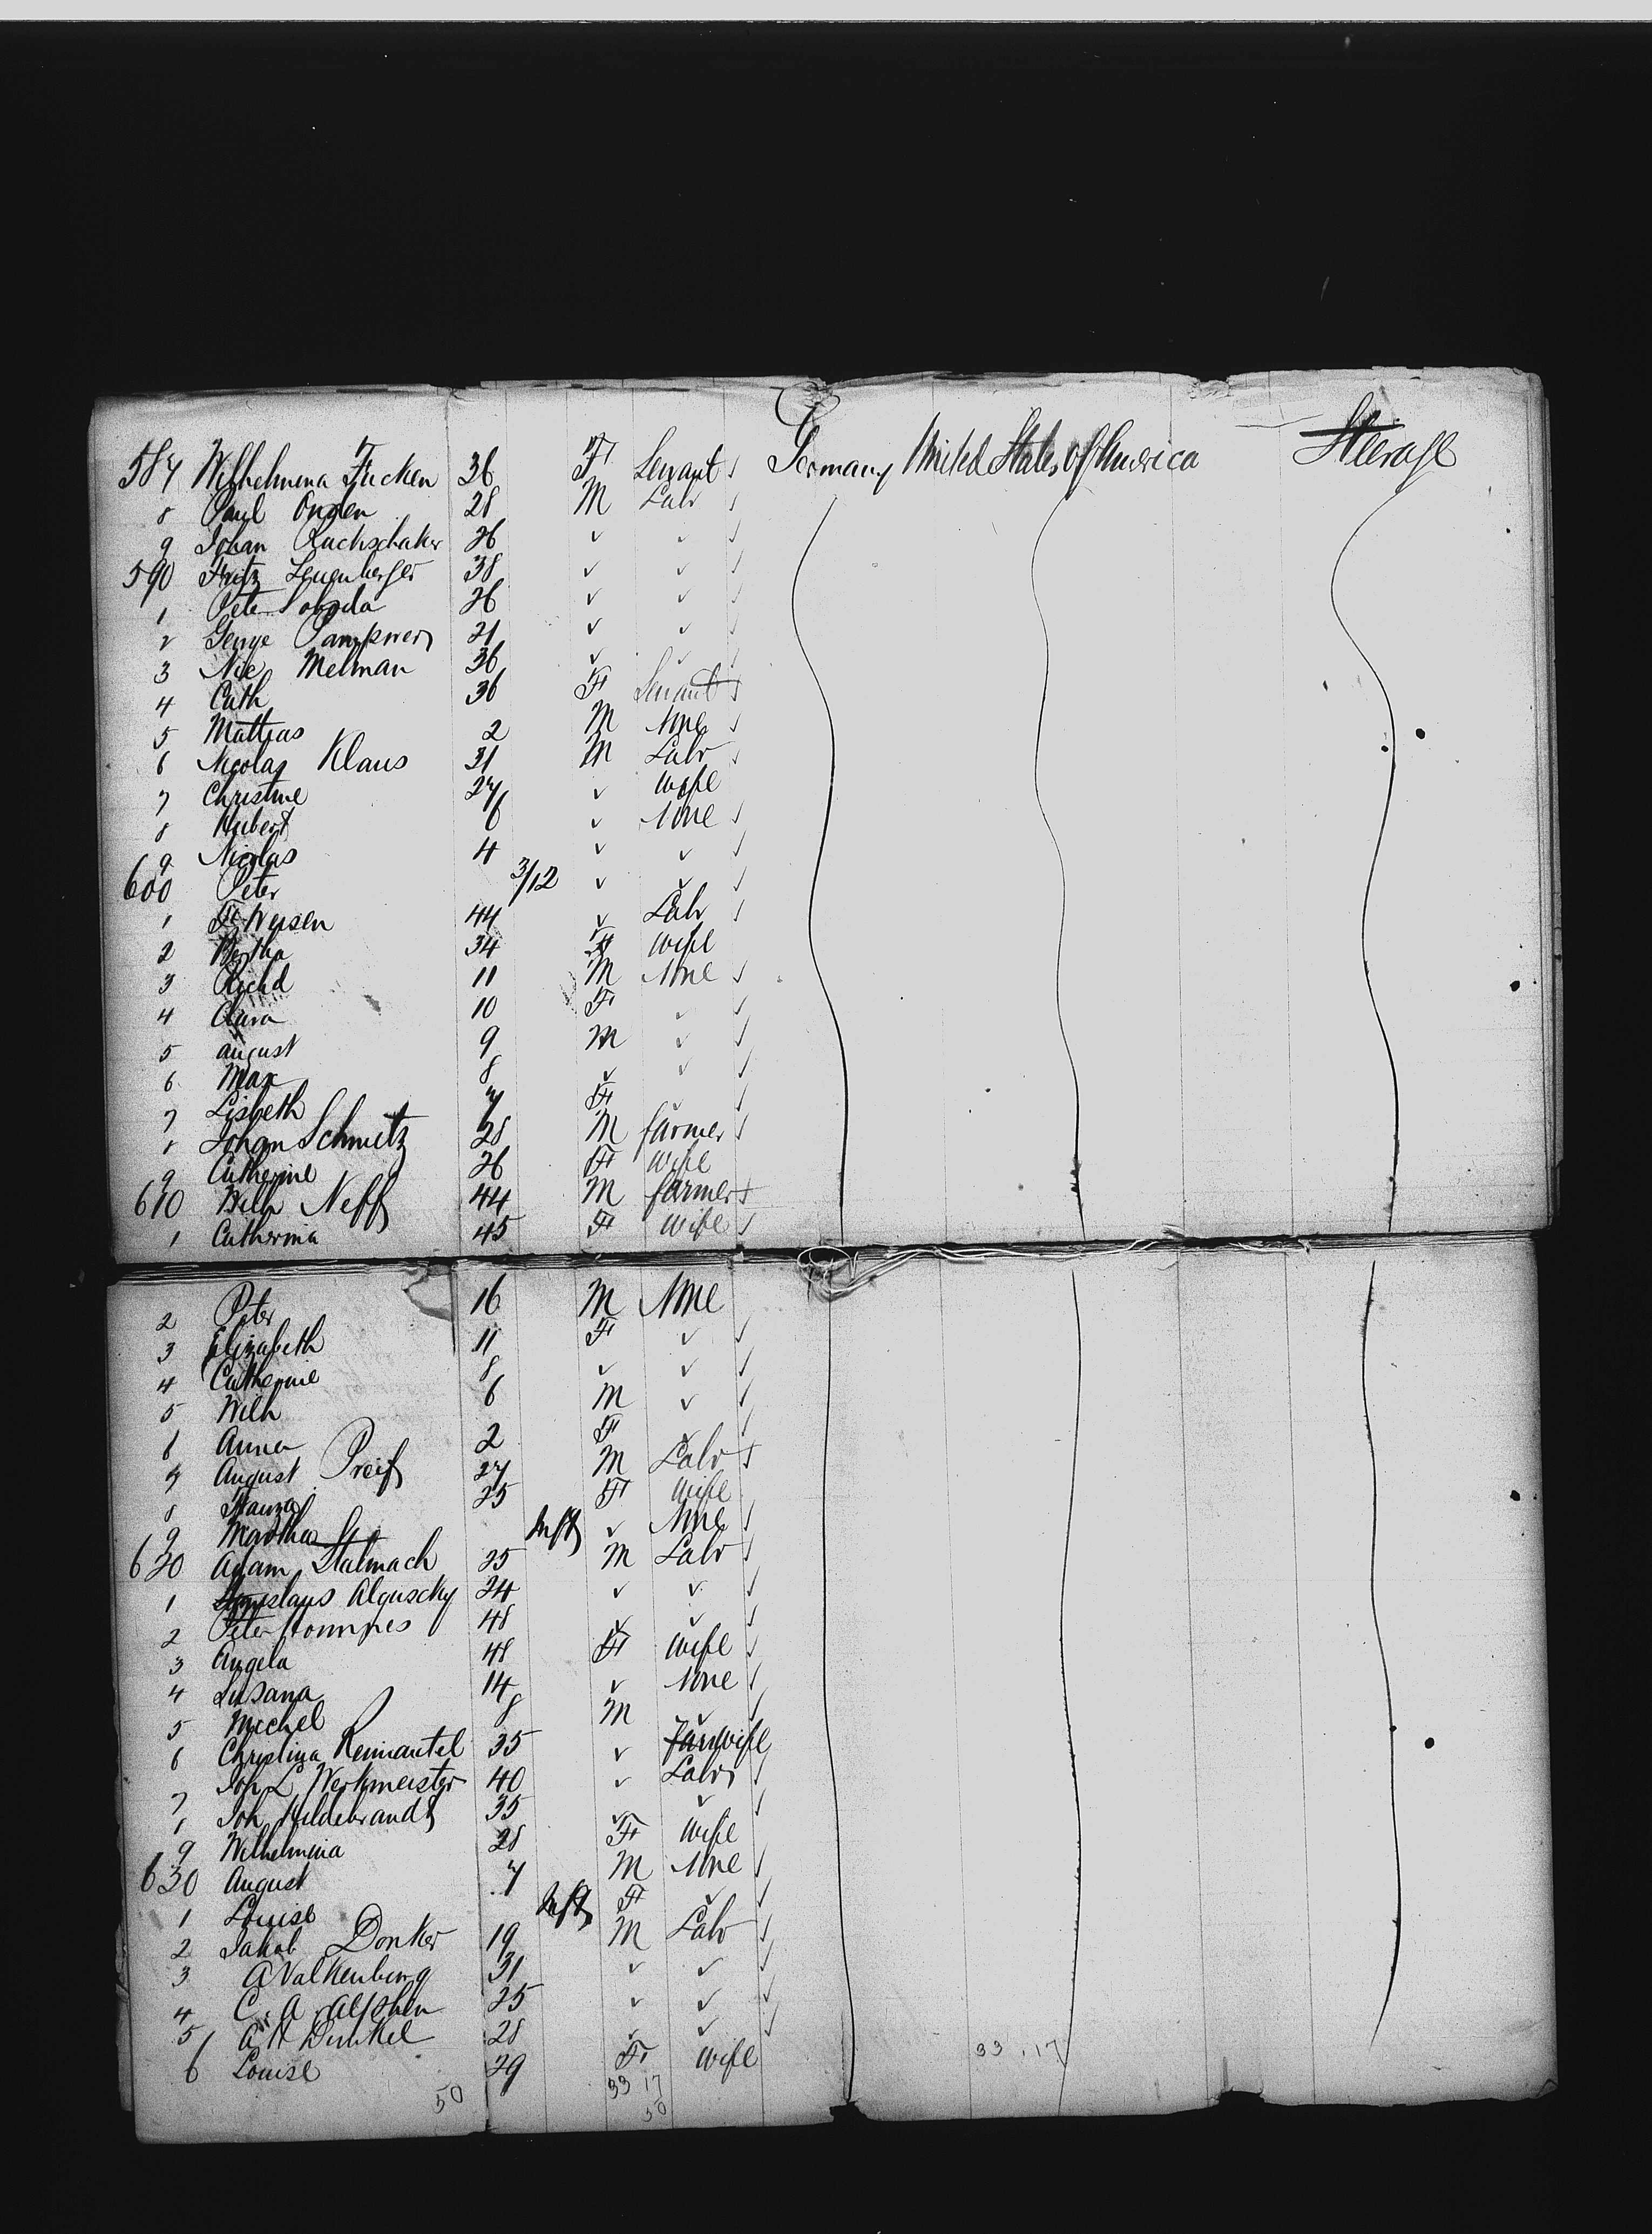 587 Wilhelmina Fricken 36 F Servant ✓ Germany United States of America Steerage
8 Paul Onglen 28 M Labr ✓
9 Johan 26 ✓ ✓ ✓
590 Fritz Leuenberger 38 ✓ ✓ ✓
1 Peter Soboda 26 ✓ ✓ ✓
2 George 21 ✓ ✓ ✓
3 Nic Melman 36 ✓ ✓ ✓
4 Cath 36 F Servant ✓
5 Mattias 2 M None ✓
6 Nicolas Klaus 31 M Labr ✓
7 Christine 27 ✓ Wife
8 Hubert 6 ✓ None ✓
9 Nicolas 4 ✓ ✓ ✓
600 Peter 3/12 ✓ ✓ ✓
1 Fr. Weisen 44 ✓ Labr ✓
2 Bertha 34 F Wife
3 Richd 11 M None ✓
4 Clara 10 F ✓ ✓
5 August 9 M ✓ ✓
6 Max 8 ✓ ✓ ✓
7 Lisbeth 7 F ✓ ✓
8 Johan Schmitz 28 M farmer ✓
9 Catherine 26 F Wife
610 Wilh Neff 44 M farmer ✓
1 Catherina 45 F Wife ✓
2 Peter 16 M None
3 Elizabeth 11 F ✓ ✓
4 Catherine 8 ✓ ✓ ✓
5 Wilh 6 M ✓ ✓
6 Anna 2 F ✓ ✓
7 August Preif 27 M Labr ✓
8 25 F Wife
9 Martha Inft ✓ None ✓
620 Adam Stalmach 25 M Labr ✓
1 Stanislaus Alguscky 24 ✓ ✓ ✓
2 Peter 48 ✓ ✓ ✓
3 Angela 48 F Wife ✓
4 Susana 14 ✓ None ✓
5 Michel 8 M ✓ ✓
6 Christina Reimantel 35 ✓ Wife
7 Joh L Werkmeister 40 ✓ Labr ✓
8 Joh Hildebrandt 35 ✓ ✓ ✓
9 Wilhelmina 28 F Wife
630 August 7 M None ✓
1 Louise Inft F ✓ ✓
2 Jakob Donker 19 M Labr ✓
3 A Valkenburg 31 ✓ ✓ ✓
4 C. A. Alphen 25 ✓ ✓ ✓
5 A H Dunkel 28 ✓ ✓ ✓
6 Louise 29 F Wife 33 . 17
50 33 17
50